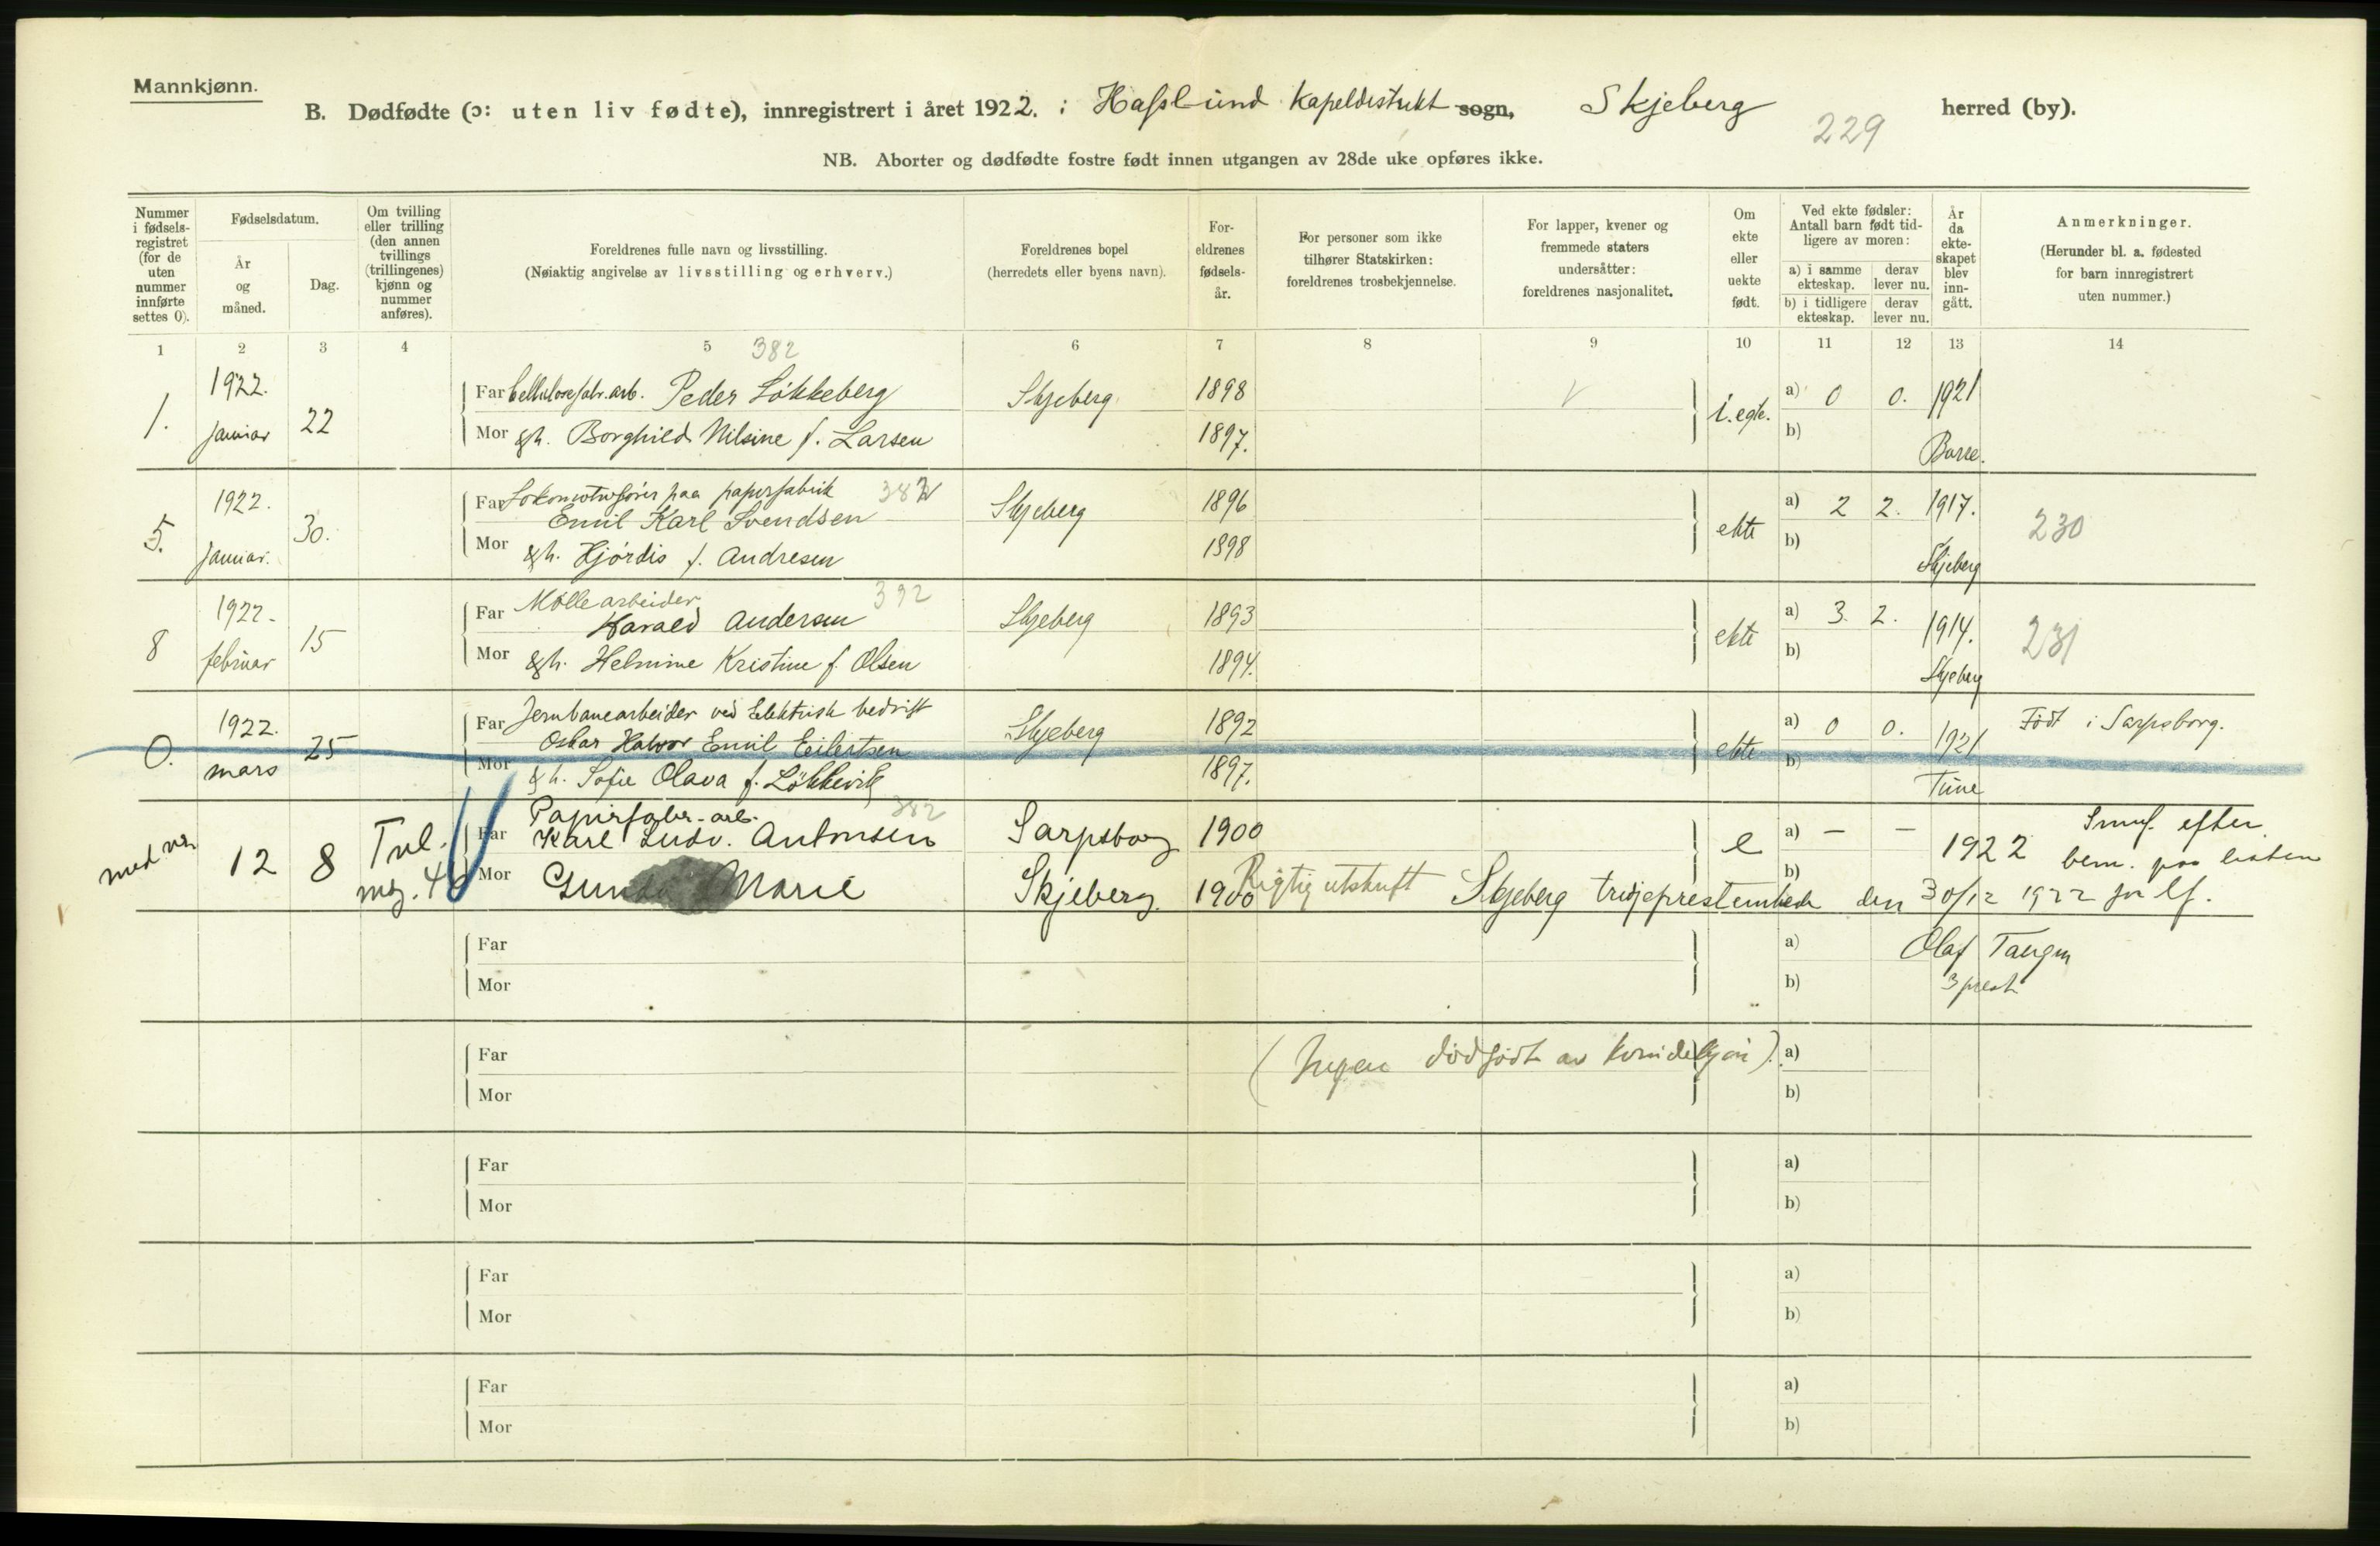 Mannkjønn.
B. Dødfødte (ɔ: uten liv fødte), innregistrert i året 1922. i Hafslund Kapeldistrikt sogn, Skjeberg herred (by).
229
NB. Aborter og dødfødte fostre født innen utgangen av 28de uke opføres ikke.
Nummer i fødsels-registret (for de uten nummer innførte settes 0).
Fødselsdatum.
År og måned.
Dag.
Om tvilling eller trilling (den annen tvillings (trillingenes) kjønn og nummer anføres).
Foreldrenes fulle navn og livsstilling.
(Nøiaktig angivelse av livsstilling og erhverv.)
Foreldrenes bopel
(herredets eller byens navn).
For-eldrenes fødsels-år.
For personer som ikke tilhører Statskirken: foreldrenes trosbekjennelse.
For lapper, kvener og fremmede staters undersåtter: foreldrenes nasjonalitet.
Om ekte eller uekte født.
Ved ekte fødsler: Antall barn født tid-ligere av moren:
a) i samme ekteskap.
derav lever nu.
b) i tidligere ekteskap.
derav lever nu.
År da ekte-skapet blev inn-gått.
Anmerkninger.
(Herunder bl. a. fødested for barn innregistrert uten nummer.)
1 2 3 4 5 382 6 7 8 9 10 11 12 13 14
1. 1922. januar 22 Far Cellulosefabr.arb. Peder Løkkeberg Skjeberg 1898 V i. egte. a) 0 0. 1921
Mor gh. Borghild Nilsine f. Larsen 1897. b) Borre.
5. 1922. januar. 30. Far Lokomotivfører paa papirfabrik 382
Emil Karl Svendsen Skjeberg 1896 ekte a) 2 2. 1917. 230
Mor gh. Hjørdis f. Andresen 1898 b) Skjeberg
8 1922. februar 15 Far Møllearbeider 392
Harald Andersen Skjeberg 1893 ekte a) 3. 2. 1914. 231
Mor gh. Helmine Kristine f. Olsen 1894. b) Skjeberg
0. 1922. mars 25 Far Jernbanearbeider ved Elektrisk bedrift
Oskar Halvor Emil Eilertsen Skjeberg 1892 ekte a) 0 0. 1921 Født i Sarpsborg.
Mor gh. Sofie Olava f. Løkkevik 1897. b) Tune
med nr. 12 8 Tvl. m. 40 Far Papirfabr.-arb. 382
Karl Ludv. Antonsen Sarpsborg 1900 e a) — — 1922 efter
bem. paa listen
Mor Marie Skjeberg 1900 b)
Rigtig utskrift Skjeberg tredjeprestembede den 30/12 1922
Far a) Olaf Tangen
Mor b) 3 prest
Far (Ingen dødfødt av kvindekjøn). a)
Mor b)
Far a)
Mor b)
Far a)
Mor b)
Far a)
Mor b)